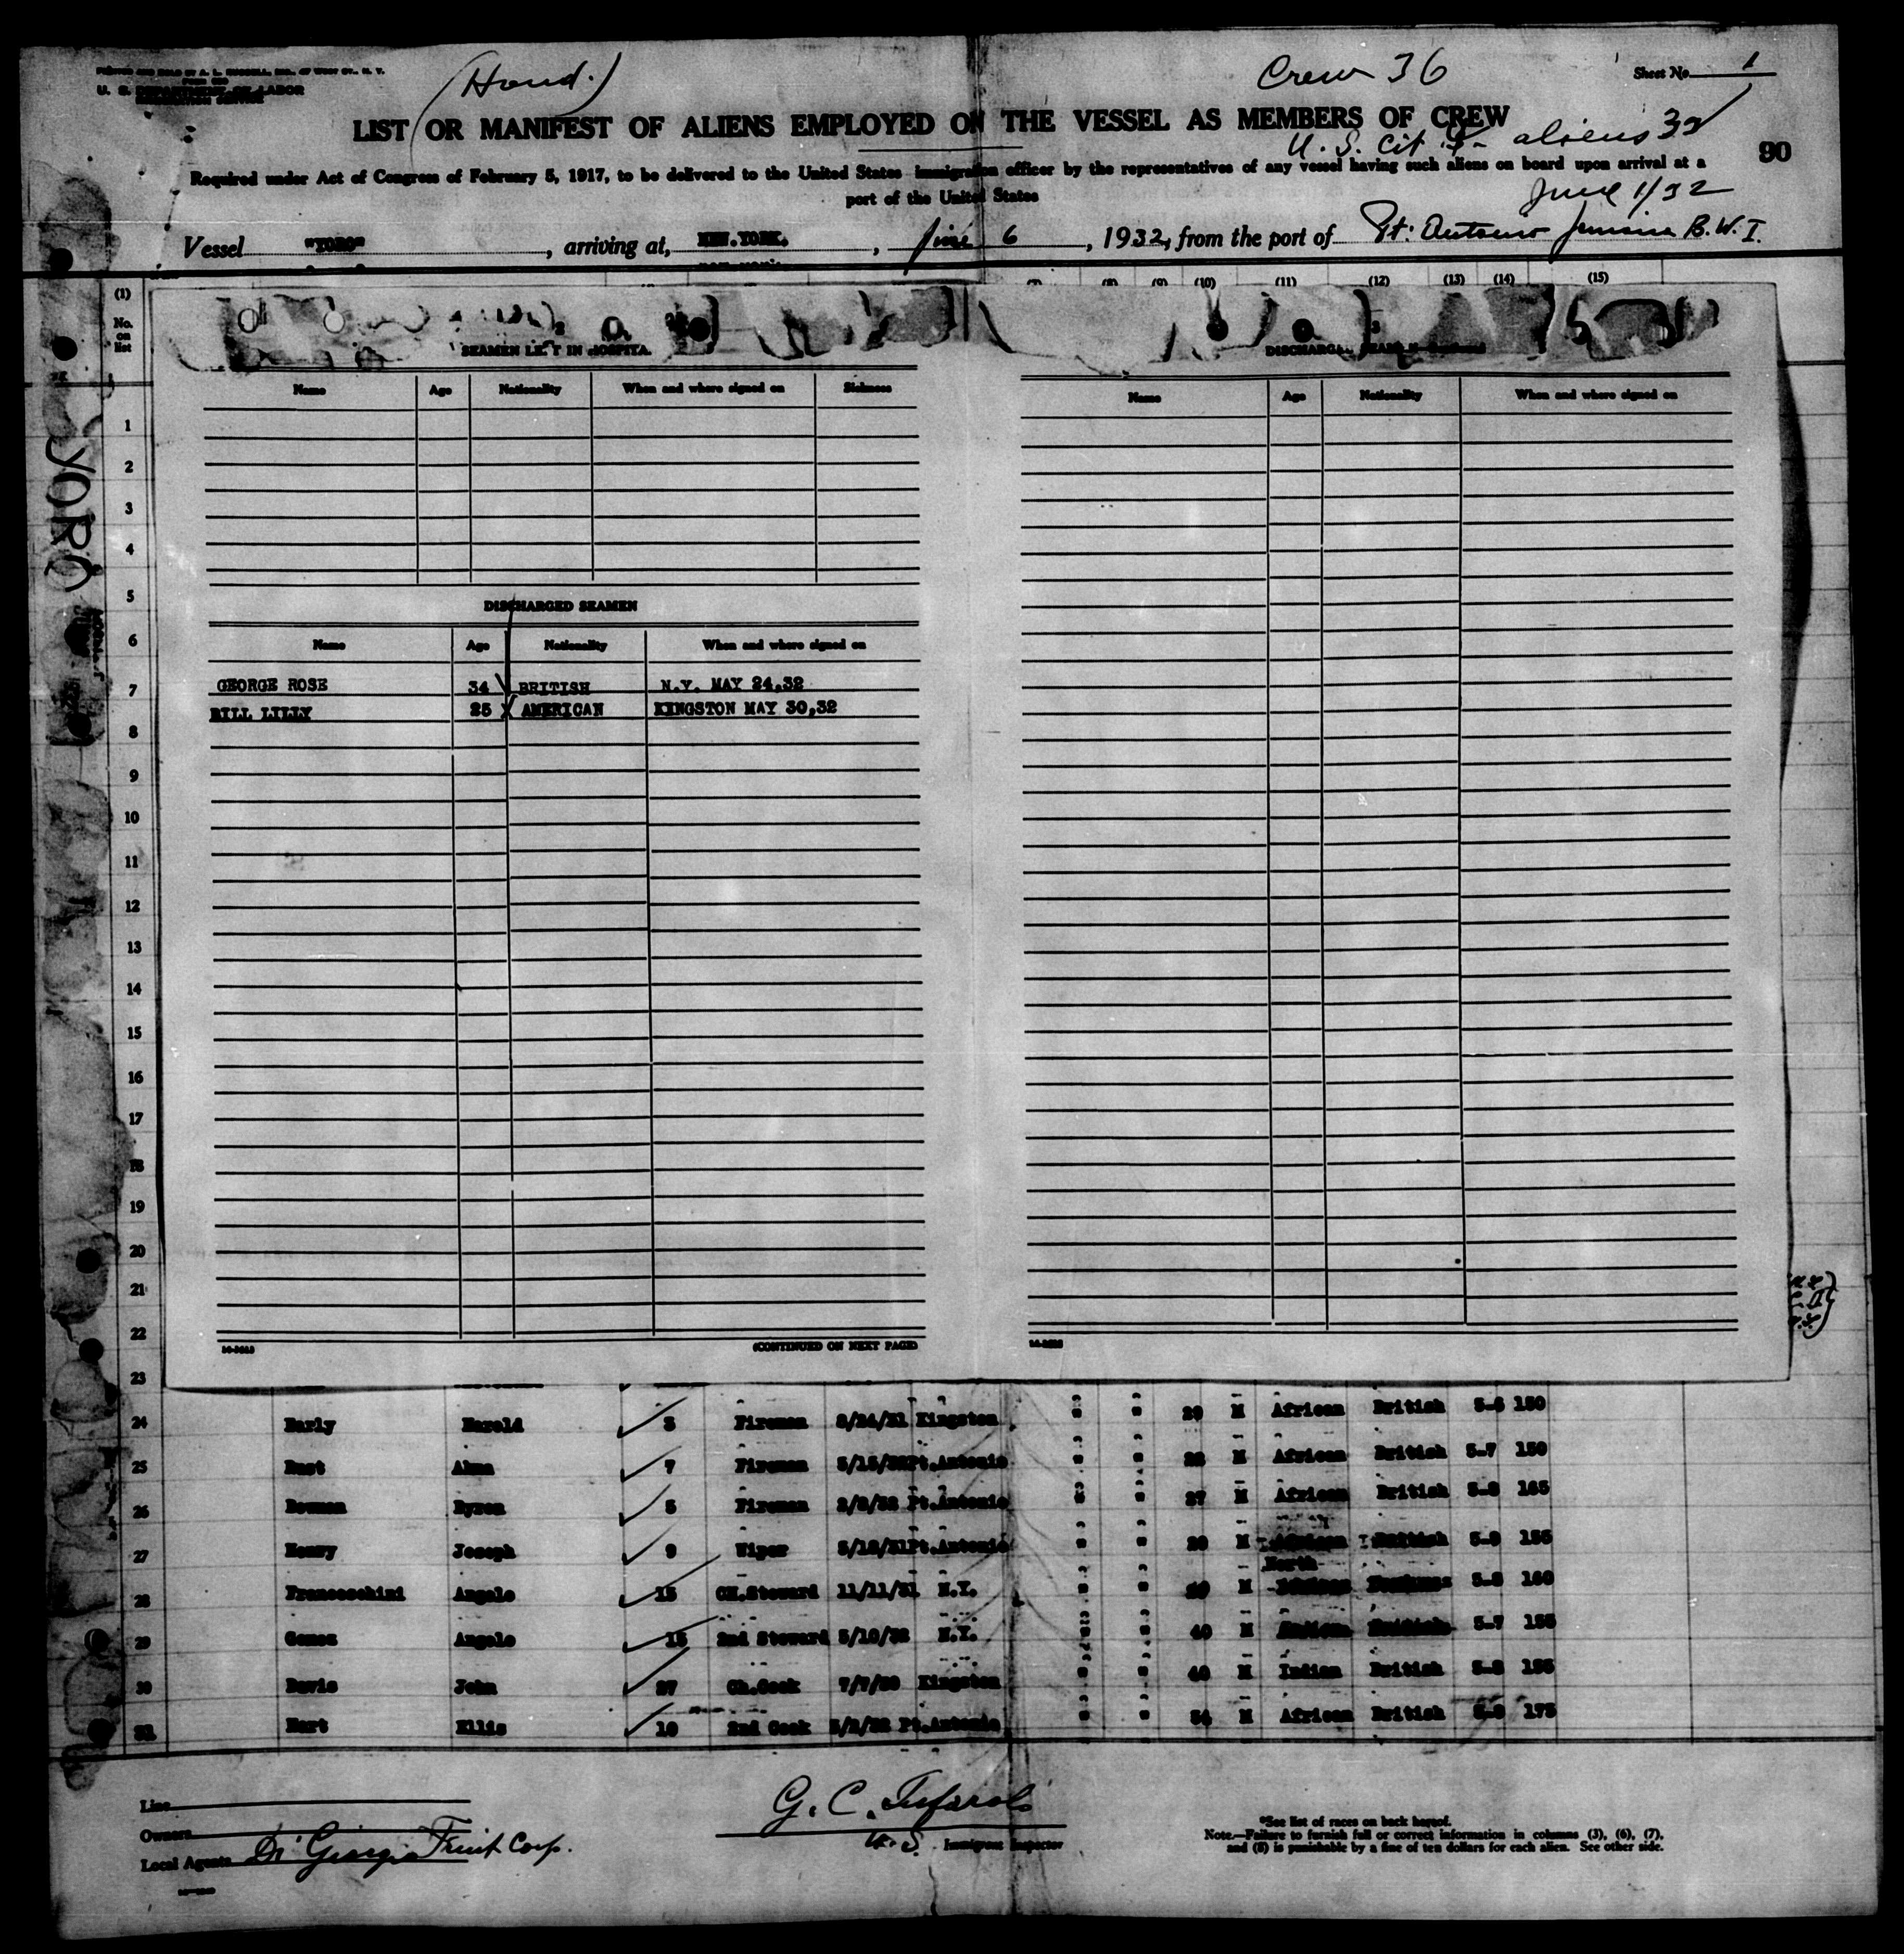 (Hond.)
Crew 36
Sheet No. 1
U. S. DEPARTMENT OF LABOR
LIST OR MANIFEST OF ALIENS EMPLOYED ON THE VESSEL AS MEMBERS OF CREW
U. S. Cit 4 - aliens 32
90
Required under Act of Congress of February 5, 1917, to be delivered to the United States immigration officer by the representatives of any vessel having such aliens on board upon arrival at a
port of the United States
June 1/32
Vessel "YORO", arriving at, NEW.YORK., June 6, 1932, from the port of Pt. Antonio Jamaica B.W.I.
(1) (8) (9) (10) (11) (12) (13) (14) (15)
No. on list
YORO
SEAMEN LEFT IN HOSPITAL
Name Age Nationality When and where signed on Sickness
DISCHARGED SEAMEN
Name Age Nationality When and where signed on
GEORGE ROSE 34 BRITISH N.Y. MAY 24,32
BILL LILLY 25 AMERICAN KINGSTON MAY 30,32
(CONTINUED ON NEXT PAGE)
Name Age Nationality When and where signed on
1
2
3
4
5
6
7
8
9
10
11
12
13
14
15
16
17
18
19
20
21
22
23
24 Early Harold 3 Fireman Kingston " " 29 M African British 5-6 150
25 Alma 7 Fireman Pt.Antonio " " 22 M African British 5-7 150
26 Bowman Byron 5 Fireman 2/2/32 Pt.Antonio " " 27 M African British 5-8 165
27 Henry Joseph 9 Wiper Pt.Antonio " " 29 M African British 5-9 155
North
28 Franceschini Angelo 15 CH.Steward 11/11/31 N.Y. " " M 5-8 160
29 Gomez Angelo 15 2nd Steward 5/10/32 N.Y. " " 40 M 5-7 155
30 Davis John 27 Ch.Cook Kingston " " 40 M Indian British 5-8 195
31 Hart Ellis 10 2nd Cook Pt.Antonio " " 34 M African British 5-9 175
Line
Owners
Local Agents Di Giorgio Fruit Corp.
G. C. Tufarolo
U.S. Immigrant Inspector
*See list of races on back hereof.
Note.—Failure to furnish full or correct information in columns (3), (6), (7),
and (8) is punishable by a fine of ten dollars for each alien. See other side.